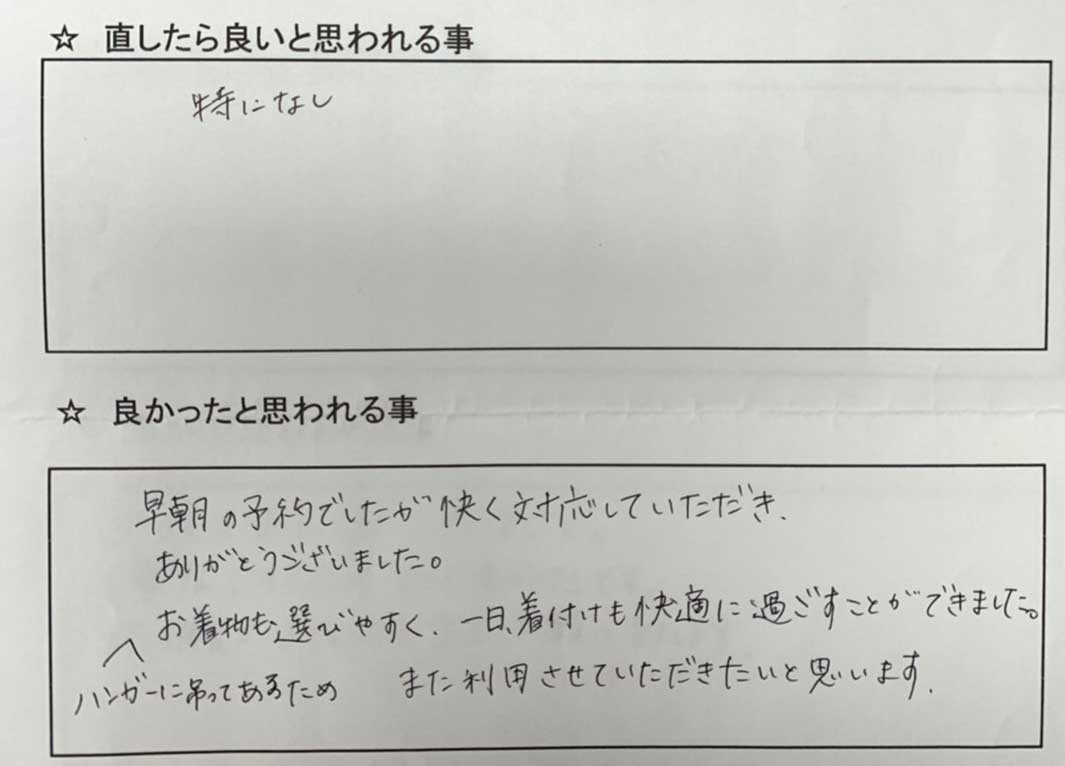 ☆ 直したら良いと思われる事
特になし
☆ 良かったと思われる事
早朝の予約でしたが快く対応していただき、
ありがとうございました。
お着物も選びやすく、一日、着付けも快適に過ごすことができました。
ハンガーに吊ってあるため
また利用させていただきたいと思います。